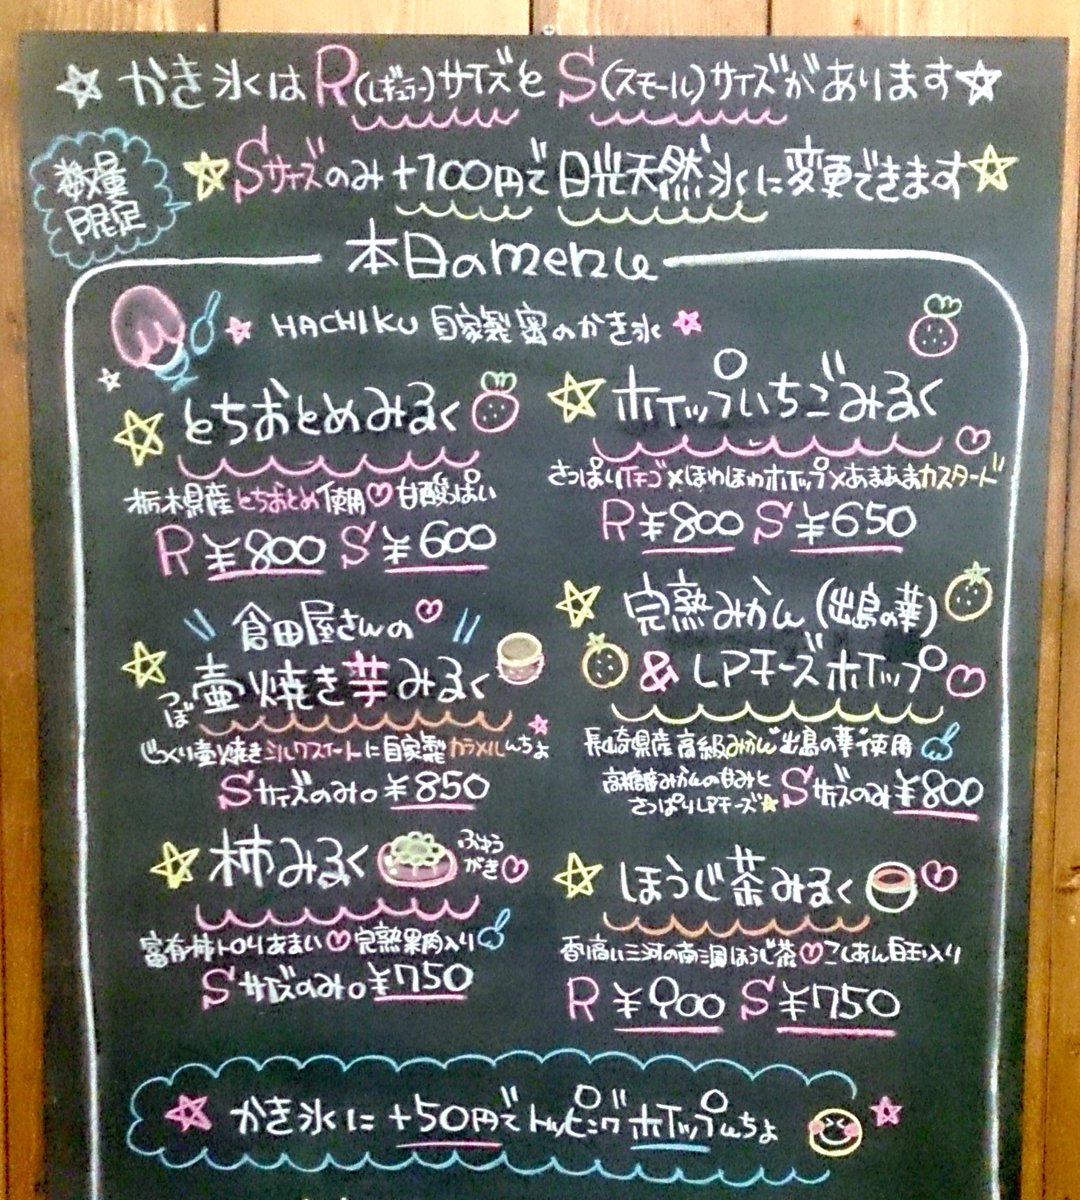 ☆かき氷はR(レギュラー)サイズとS(スモール)サイズがあります☆
数量
限定
☆Sサイズのみ+100円で日光天然氷に変更できます☆
本日のmenu
☆HACHIKU 自家製蜜のかき氷☆
☆とちおとめみるく
栃木県産とちおとめ使用♡甘酸っぱい
R ¥800 S ¥600
☆ホイップいちごみるく
さっぱりイチゴ×ほわほわホイップ×あまあまカスタード
R ¥800 S ¥650
倉田屋さんの♡
☆壷焼き芋みるく
つぼ
じっくり壷焼きシルクスイートに自家製カラメルんちょ
Sサイズのみ。¥850
☆完熟みかん(出島の華)
&LPチーズホイップ♡
長崎県産高級みかん出島の華使用
高糖度みかんの甘みと
さっぱりLPチーズ☆
Sサイズのみ¥800
☆柿みるく
ふゆう
がき♡
富有柿トロりあまい♡完熟果肉入り
Sサイズのみ。¥750
☆ほうじ茶みるく♡
香り高い三河の南調ほうじ茶♡こしあん白玉入り
R ¥900 S ¥750
☆かき氷に+50円でトッピングホイップんちょ☆